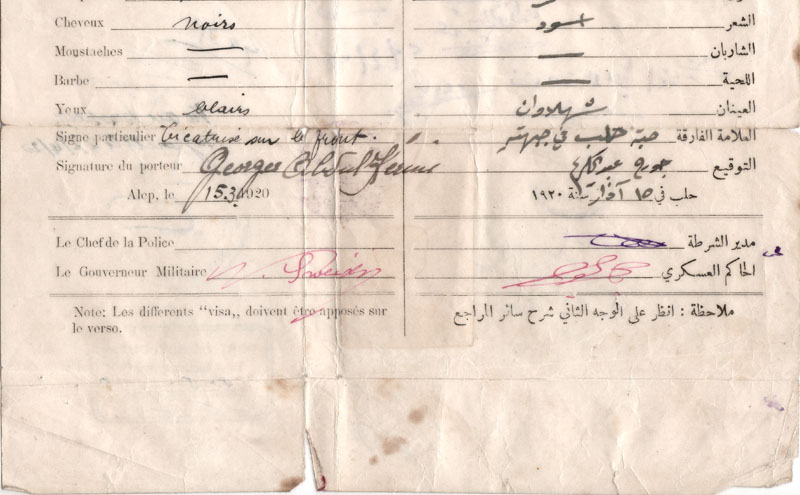 Cheveux noirs
الشعر اسود
Moustaches —
الشاربان —
Barbe —
اللحية —
Yeux clairs
العينان شهلاوان
Signe particulier Cicatrise sur le front.
العلامة الفارقة حبة حلب في جبهته
Signature du porteur Georges
التوقيع جورج عبد الكريم
Alep, le 15.3.1920
حلب في ١٥ آذار سنة ١٩٢٠
Le Chef de la Police
مدير الشرطة
Le Gouverneur Militaire
الحاكم العسكري
Note: Les differents "visa,, doivent être apposés sur
le verso.
ملاحظة : انظر على الوجه الثاني شرح سائر المراجع